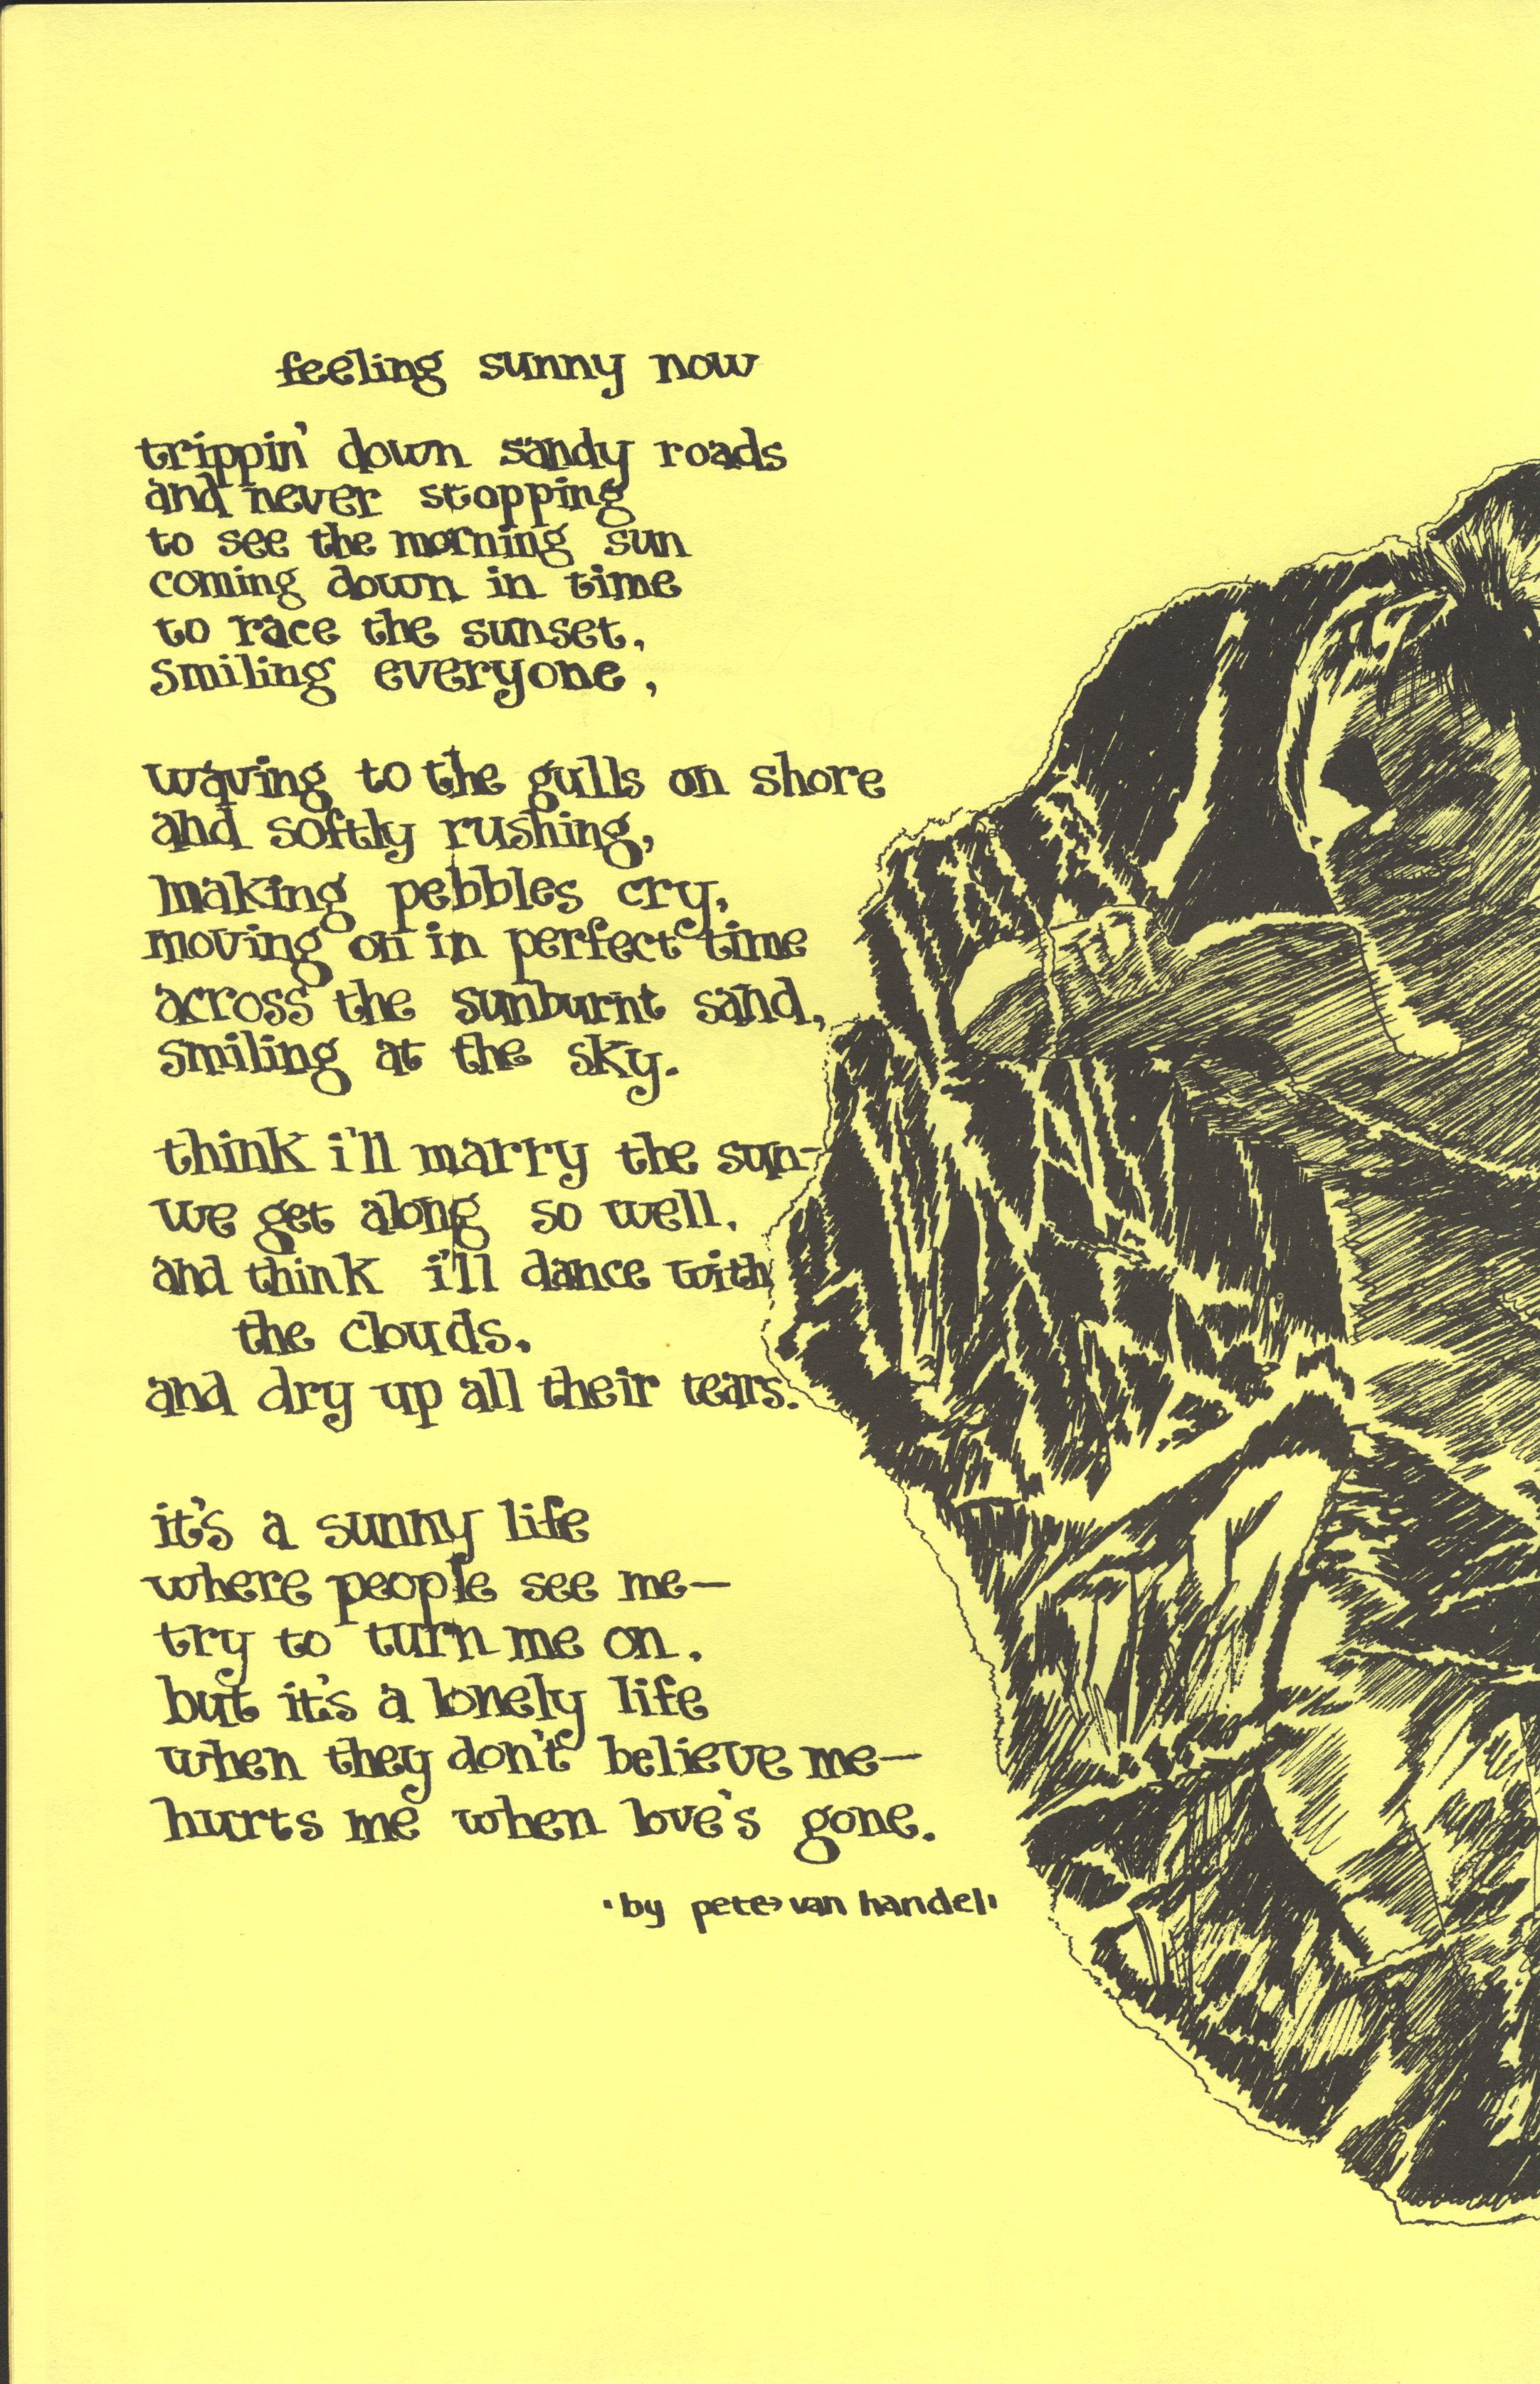 feeling sunny now
trippin' down sandy roads
and never stopping
to see the morning sun
coming down in time
to race the sunset,
smiling everyone,
waving to the gulls on shore
and softly rushing,
making pebbles cry,
moving on in perfect time
across the sunburnt sand,
smiling at the sky.
think i'll marry the sun-
we get along so well.
and think i'll dance with
the clouds.
and dry up all their tears.
it's a sunny life
where people see me—
try to turn me on.
but it's a lonely life
when they don't believe me—
hurts me when love's gone.
·by pete van handel·